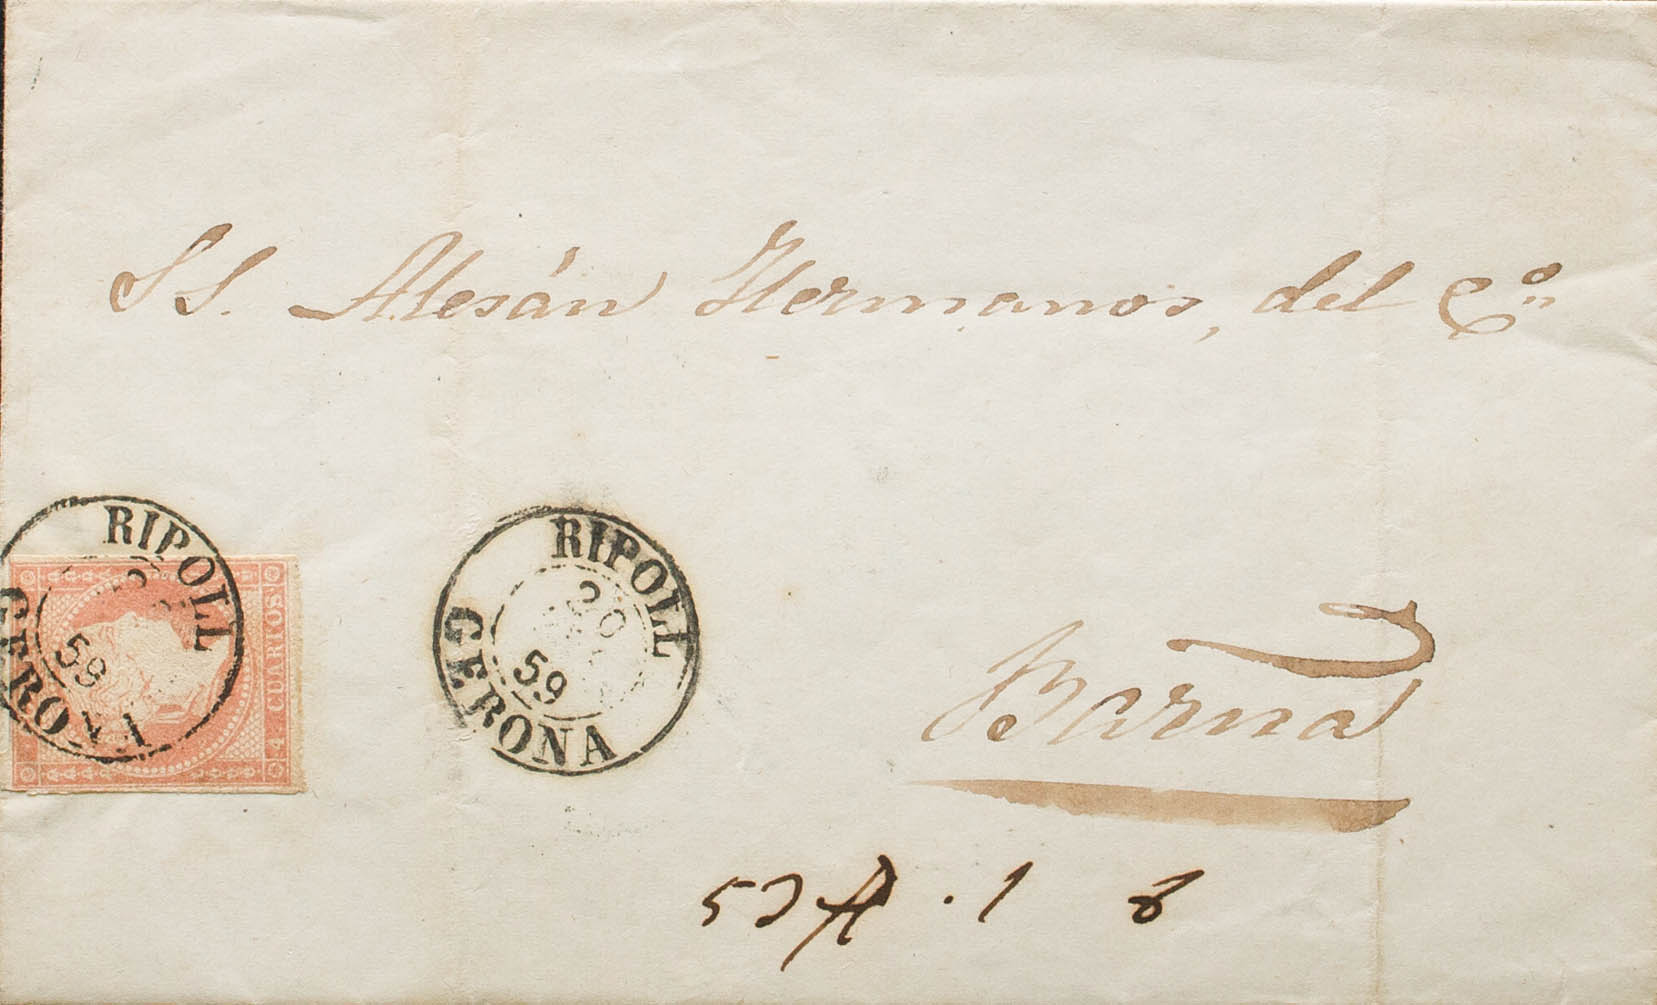 SS. Alesán Hermanos, del C.º
RIPOLL
GERONA
59
4 CUARTOS
RIPOLL
20
59
GERONA
Barna
53 A . 1 8